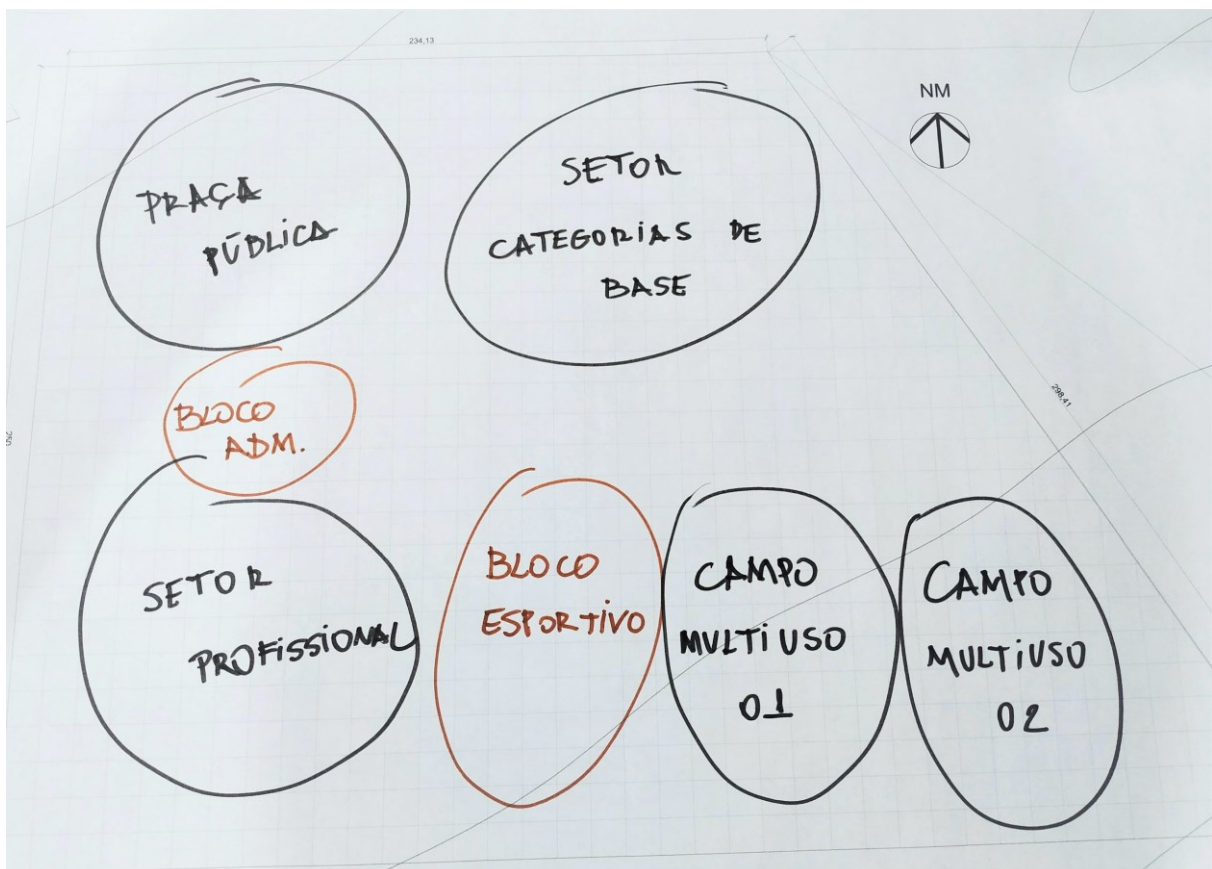 234,13
NM
PRAÇA
PÚBLICA
SETOR
CATEGORIAS DE
BASE
298,41
BLOCO
ADM.
SETOR
PROFISSIONAL
BLOCO
ESPORTIVO
CAMPO
MULTIUSO
01
CAMPO
MULTIUSO
02